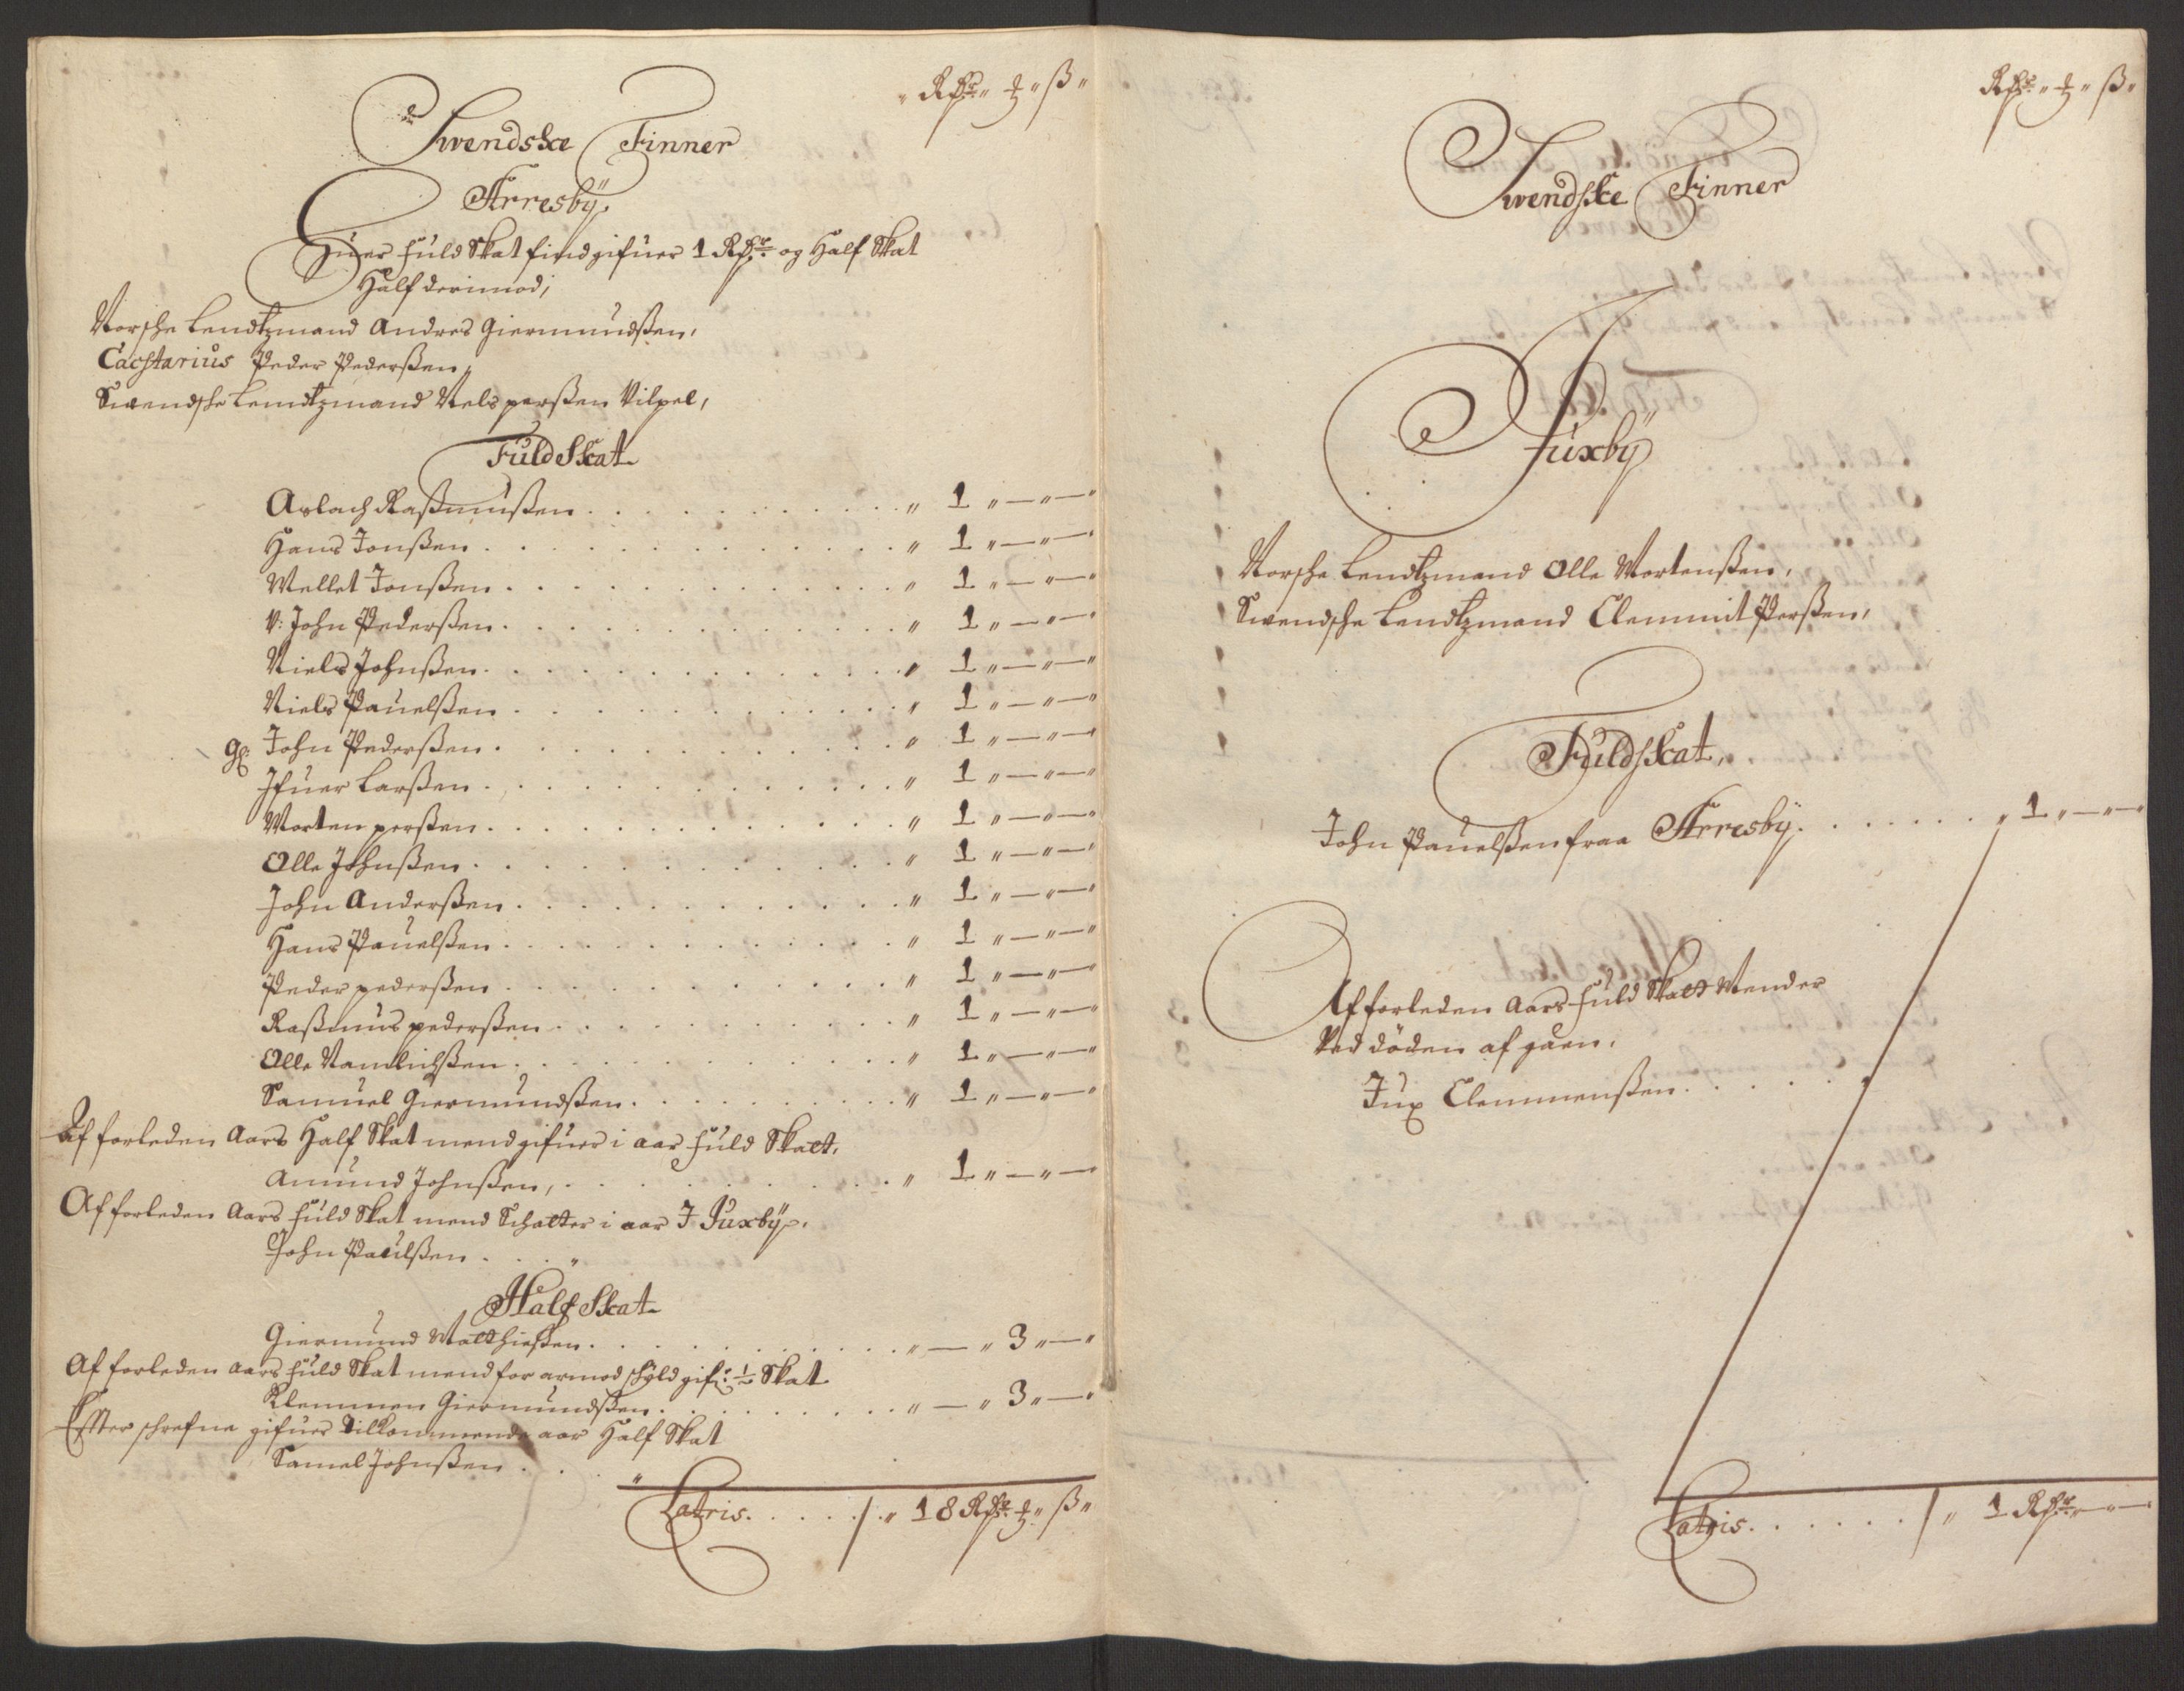 Rdr " ₰ " ß "
Swendske Finner
Arresbÿ
Huer fuld Skat find gifuer 1 Rdr og Half Skat
Half derimod;
Norsche Lendtzmand Andres Giermundßen,
Peder Pederßen,
Swendsche Lendtzmand Nels perßen Vilpel,
Fuld Skat
Aslach Raßmußen . . . . " 1 " — " — "
Hans Jonßen . . . . " 1 " — " — "
Mellet Jonßen . . . . " 1 " — " — "
V: John Pederßen . . . . " 1 " — " — "
Niels Johnßen . . . . " 1 " — " — "
Niels Pauelßen . . . . " 1 " — " — "
Gl: John Pederßen . . . . " 1 " — " — "
Ifuer Larßen . . . . " 1 " — " — "
Morten perßen . . . . " 1 " — " — "
Olle Johnßen . . . . " 1 " — " — "
John Anderßen . . . . " 1 " — " — "
Hans Pauelßen . . . . " 1 " — " — "
Peder pederßen . . . . " 1 " — " — "
Raßmus pederßen . . . . " 1 " — " — "
Olle . . . . " 1 " — " — "
Samuel Giermundßen . . . . " 1 " — " — "
Af forleden Aars Half Skat mend gifuer i aar fuld Skatt.
Amund Johnßen, . . . . " 1 " — " — "
Af forleden Aars fuld Skat mend Schatter i aar I Juxbÿ.
John Paulßen . . . "
Half Skat
Giermund Matthießen . . . . " — " 3 " — "
Af forleden aars fuld Skat mend for armod schyld gif: ½ Skat
Klemmen Giermundßen . . . . " — " 3 " — "
Effter schrefne gifuer tilkommende aar Half Skat
Samel Johnßen . . . . "
Latris . . . . / . " 18 Rdr ₰ " ß "
Rdr " ₰ " ß "
Swendske Finner
Juxbÿ
Norsche Lendtzmand Olle Mortenßen,
Swendsche Lendtzmand Clemmit Perßen,
Fuld Skat,
John Pauelßen fraa Arresbÿ . . . . " 1 " — " — "
Af forleden Aars fuld Skatt Mender
Ved döden af gaaen.
Jux Clemmenßen . . . .
Latris . . . . / " 1 Rdr " — " —